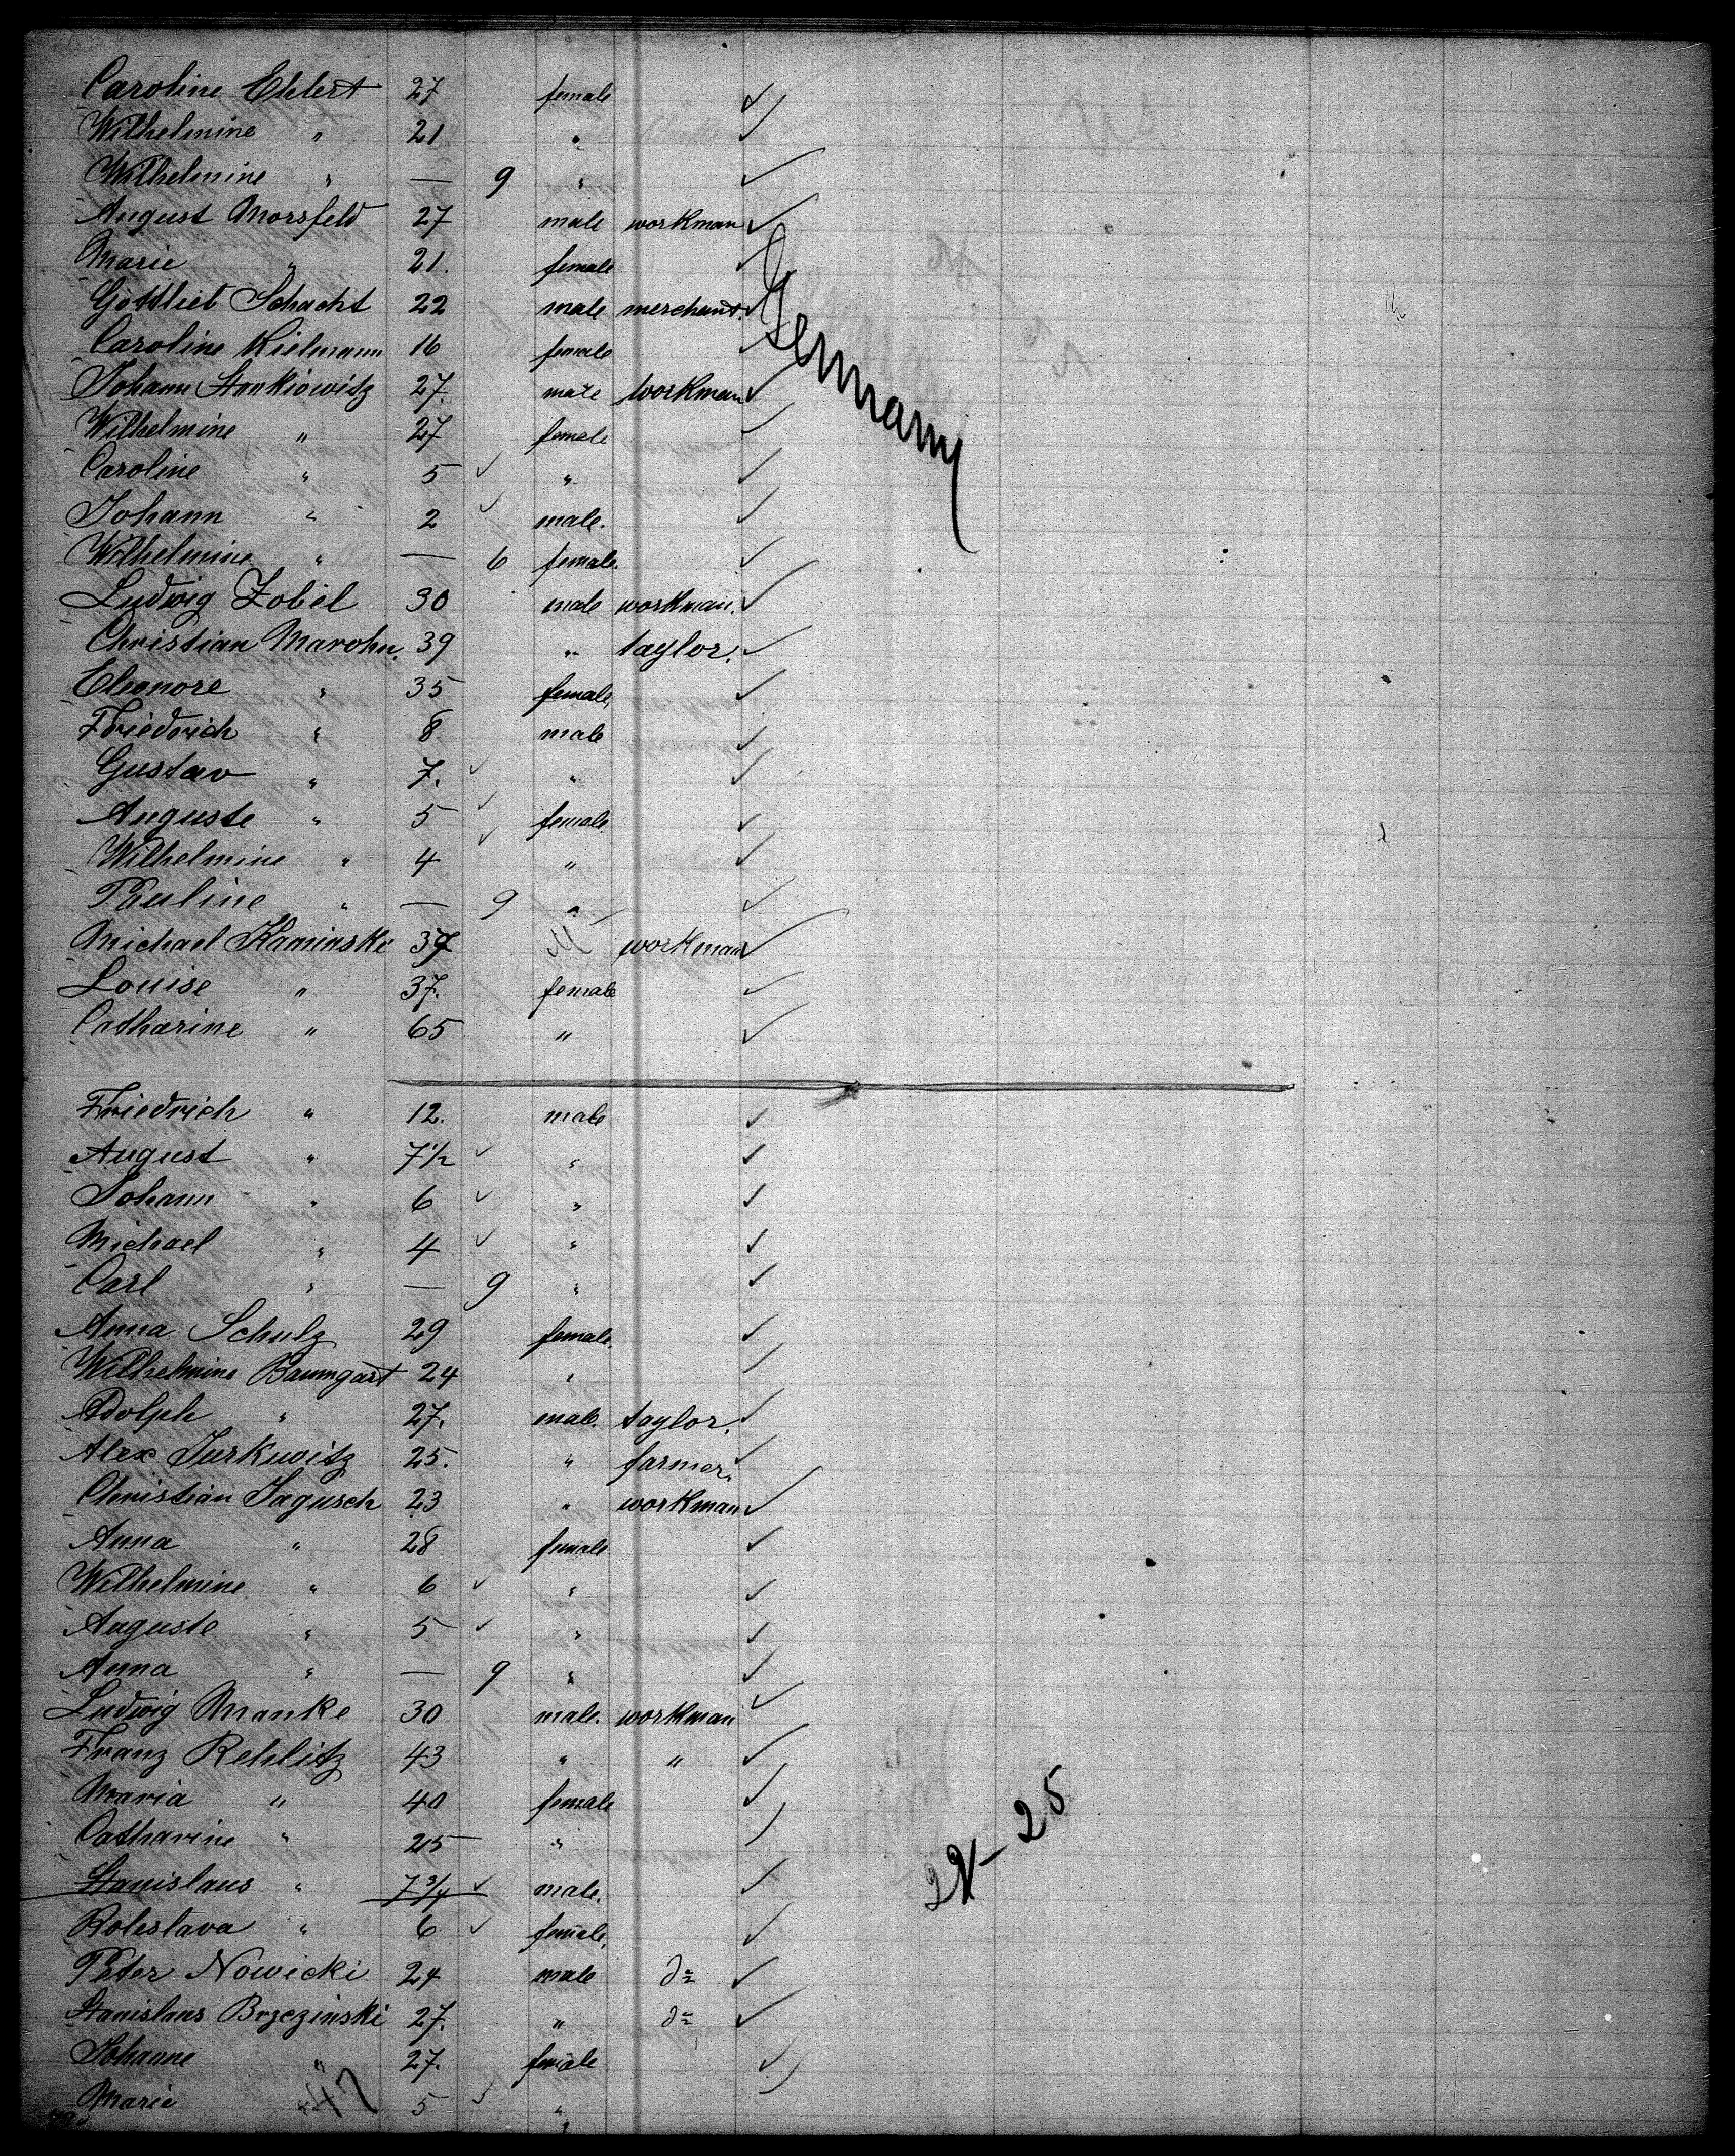 Caroline Ehlert 27 female ✓
Wilhelmine " 21 " ✓
Wilhelmine " — 9 " ✓
August Morsfeld 27 male workman ✓
Marie " 21. female ✓
Gottlieb Schacht 22 male merchant. ✓
Caroline Kielmann 16 female ✓
Germany
Johann Stankiowitz 27. male workman ✓
Wilhelmine " 27 female ✓
Caroline " 5 ✓ " ✓
Johann " 2 ✓ male. ✓
Wilhelmine " — 6 female. ✓
Ludwig Zobel 30 male workman. ✓
Christian Marohn. 39 " taylor. ✓
Eleonore " 35 female, ✓
Friedrich " 8 male ✓
Gustav " 7. ✓ " ✓
Auguste " 5 ✓ female ✓
Wilhelmine " 4 ✓ " ✓
Pauline " — 9 " ✓
Michael Kaminski 37 M workman ✓
Louise " 37. female ✓
Catharine " 65 " ✓
Friedrich " 12. male ✓
August " 7½ ✓ " ✓
Johann " 6 ✓ " ✓
Michael " 4 ✓ " ✓
Carl " — 9 " ✓
Anna Schulz 29 female. ✓
Wilhelmine Baumgart 24 " ✓
Adolph " 27. male. taylor. ✓
Alex Jurkuwitz 25. " farmer. ✓
Christian Jagusch 23 " workman ✓
Anna " 28 female ✓
Wilhelmine " 6 ✓ " ✓
Auguste " 5 ✓ " ✓
Anna " — 9 " ✓
Ludwig Manke 30 male. workman ✓
Franz Rehlitz 43 " " ✓
Maria " 40 female ✓
Catharine " 25 " ✓
Stanislaus " 7¾ ✓ male. ✓
Roleslava " 6 ✓ female, ✓
Peter Nowicki 24 male do ✓
Stanislaus Brzezinski 27. " do ✓
Johanne " 27. female ✓
Marie " 5 ✓ "